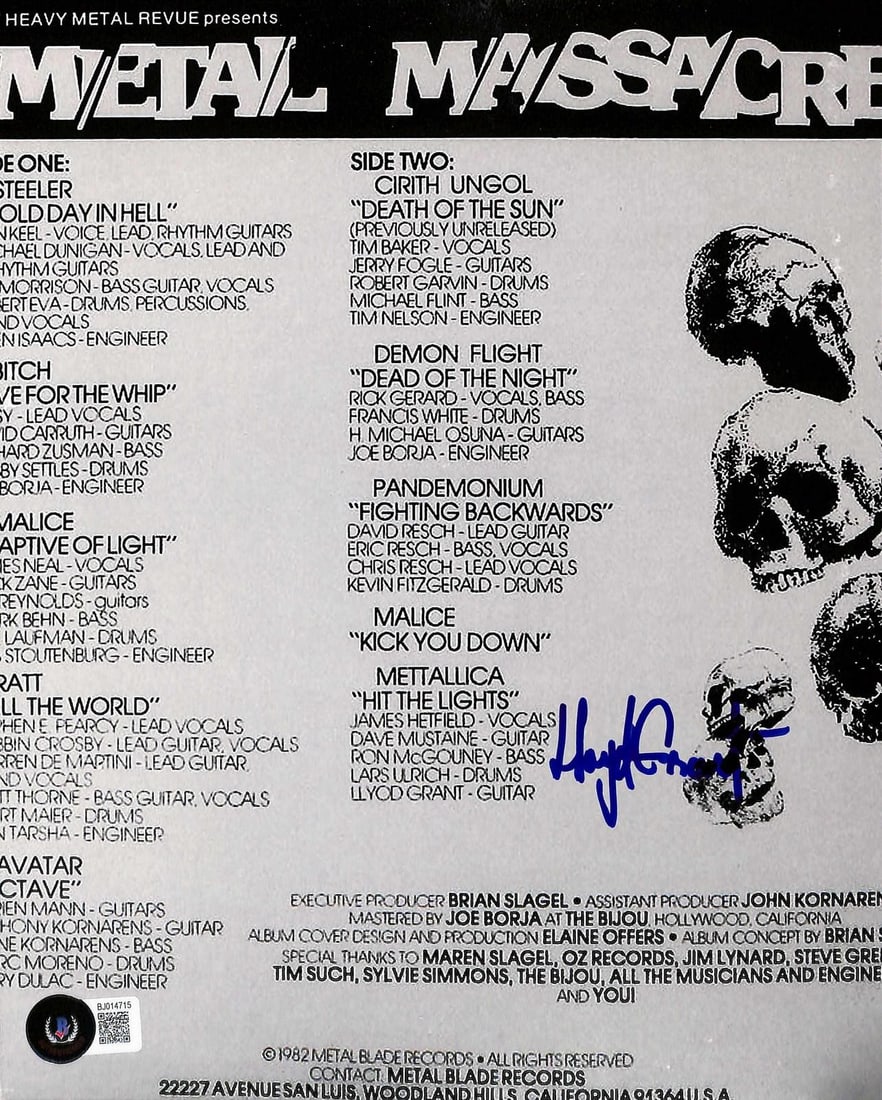 HEAVY METAL REVUE presents
METAL MASSACRE
DE ONE:
STEELER
OLD DAY IN HELL"
N KEEL - VOICE, LEAD, RHYTHM GUITARS
CHAEL DUNIGAN - VOCALS, LEAD AND
HYTHM GUITARS
MORRISON - BASS GUITAR, VOCALS
BERT EVA - DRUMS, PERCUSSIONS,
ND VOCALS
EN ISAACS - ENGINEER
BITCH
VE FOR THE WHIP"
SY - LEAD VOCALS
VID CARRUTH - GUITARS
HARD ZUSMAN - BASS
BBY SETTLES - DRUMS
BORJA - ENGINEER
MALICE
APTIVE OF LIGHT"
MES NEAL - VOCALS
CK ZANE - GUITARS
REYNOLDS - guitars
RK BEHN - BASS
LAUFMAN - DRUMS
S STOUTENBURG - ENGINEER
RATT
LL THE WORLD"
PHEN E. PEARCY - LEAD VOCALS
BBIN CROSBY - LEAD GUITAR, VOCALS
RREN DE MARTINI - LEAD GUITAR,
ND VOCALS
TT THORNE - BASS GUITAR, VOCALS
RT MAIER - DRUMS
N TARSHA - ENGINEER
AVATAR
CTAVE"
RIEN MANN - GUITARS
THONY KORNARENS - GUITAR
NE KORNARENS - BASS
RC MORENO - DRUMS
RY DULAC - ENGINEER
SIDE TWO:
CIRITH UNGOL
"DEATH OF THE SUN"
(PREVIOUSLY UNRELEASED)
TIM BAKER - VOCALS
JERRY FOGLE - GUITARS
ROBERT GARVIN - DRUMS
MICHAEL FLINT - BASS
TIM NELSON - ENGINEER
DEMON FLIGHT
"DEAD OF THE NIGHT"
RICK GERARD - VOCALS, BASS
FRANCIS WHITE - DRUMS
H. MICHAEL OSUNA - GUITARS
JOE BORJA - ENGINEER
PANDEMONIUM
"FIGHTING BACKWARDS"
DAVID RESCH - LEAD GUITAR
ERIC RESCH - BASS, VOCALS
CHRIS RESCH - LEAD VOCALS
KEVIN FITZGERALD - DRUMS
MALICE
"KICK YOU DOWN"
METTALLICA
"HIT THE LIGHTS"
JAMES HETFIELD - VOCALS
DAVE MUSTAINE - GUITAR
RON McGOUNEY - BASS
LARS ULRICH - DRUMS
LLYOD GRANT - GUITAR
EXECUTIVE PRODUCER BRIAN SLAGEL • ASSISTANT PRODUCER JOHN KORNAREN
MASTERED BY JOE BORJA AT THE BIJOU, HOLLYWOOD, CALIFORNIA
ALBUM COVER DESIGN AND PRODUCTION ELAINE OFFERS • ALBUM CONCEPT BY BRIAN S
SPECIAL THANKS TO MAREN SLAGEL, OZ RECORDS, JIM LYNARD, STEVE GRE
TIM SUCH, SYLVIE SIMMONS, THE BIJOU, ALL THE MUSICIANS AND ENGINE
AND YOU!
BJ014715
©1982 METAL BLADE RECORDS • ALL RIGHTS RESERVED
CONTACT: METAL BLADE RECORDS
22227 AVENUE SAN LUIS, WOODLAND HILLS, CALIFORNIA 91364 U.S.A.